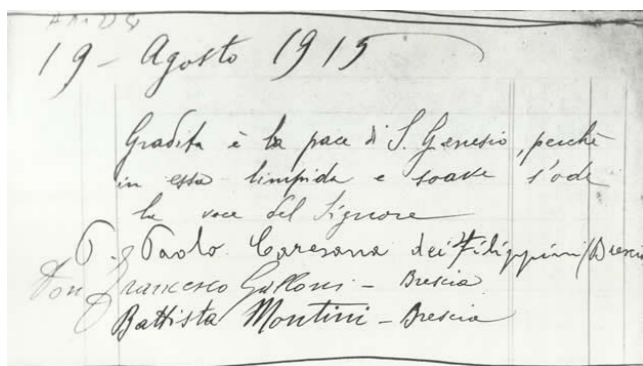 A M D G
19 - Agosto 1915
Gradita è la pace di S. Genesio, perchè
in essa limpida e soave s'ode
la voce del Signore
P. Paolo Caresana dei Filippini (Brescia
Don Francesco Galloni - Brescia
Battista Montini - Brescia